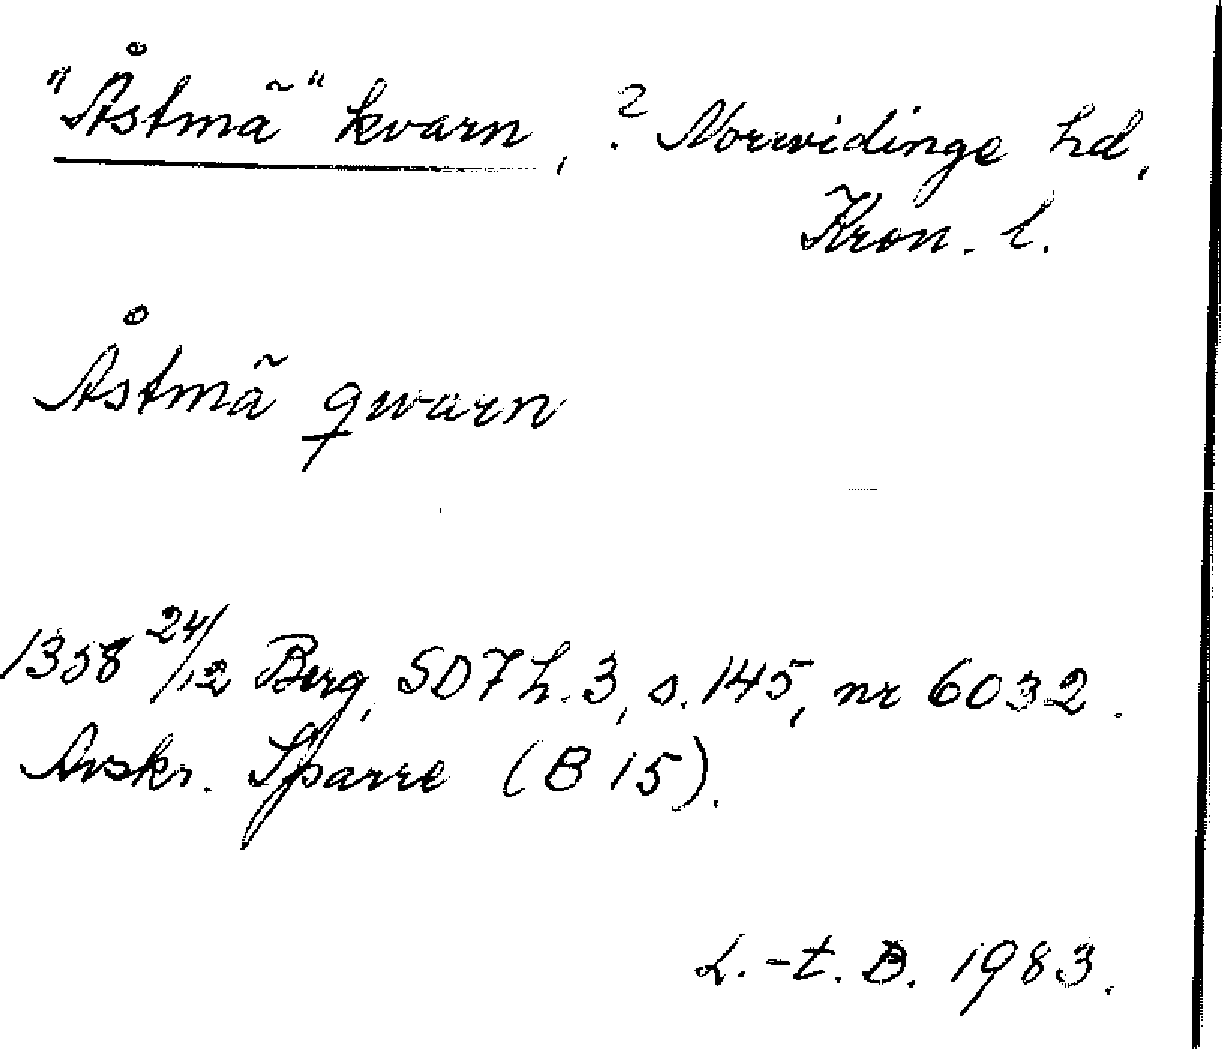 "Åstmã" kvarn, ? Norrvidinge hd,
Kron. l.
Åstmã qwarn
1358 24/12 Berg, SD 7 h. 3, s. 145, nr 6032.
Avskr. Sparre (B 15).
L.-t. B. 1983.